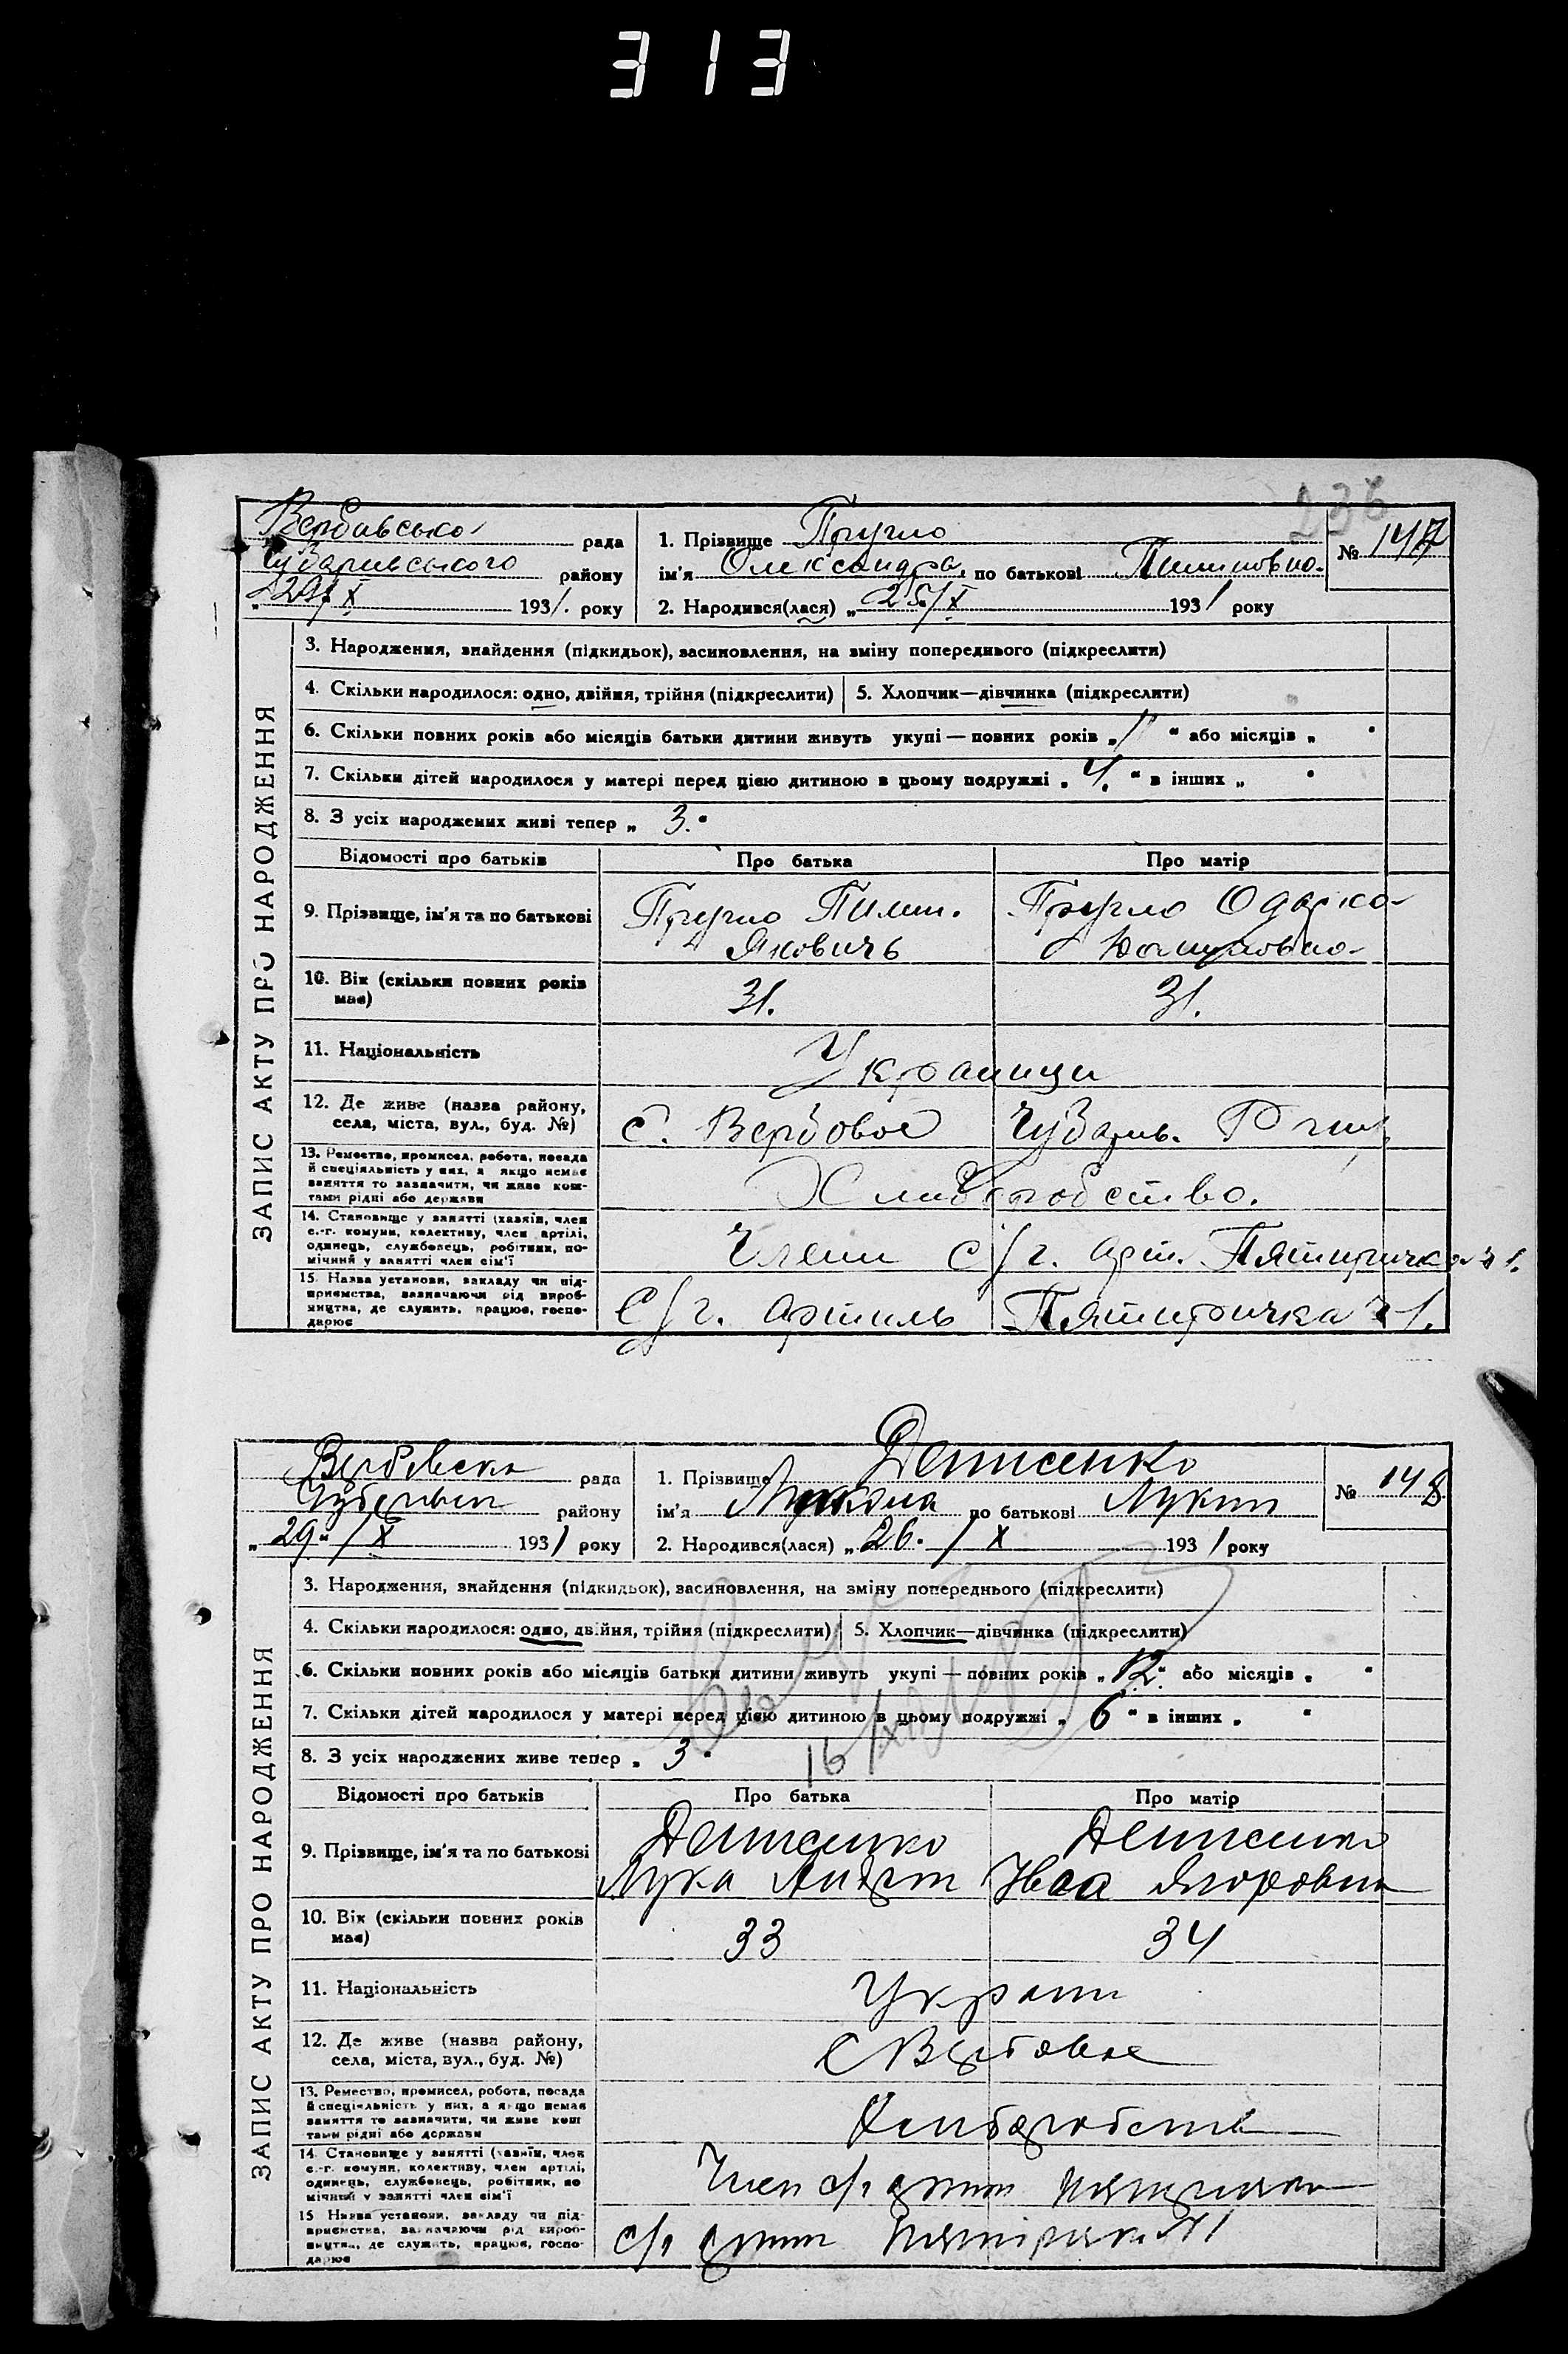 313
236
Вербивсько рада
Чубаривського району
„29/X 1931. року
1. Прізвище Пругло
ім'я Олександра, по батькові Пилиповно.
2. Народився(лася) „25/X 1931 року
№ 147
ЗАПИС АКТУ ПРО НАРОДЖЕННЯ
3. Народження, знайдення (підкидьок), засиновлення, на зміну попереднього (підкреслити)
4. Скільки народилося: одно, двійня, трійня (підкреслити) 5. Хлопчик—дівчинка (підкреслити)
6. Скільки повних років або місяців батьки дитини живуть укупі — повних років „ “ або місяців „ “
7. Скільки дітей народилося у матері перед цією дитиною в цьому подружжі „ 4. “ в інших „ “
8. З усіх народжених живі тепер „ 3. “
Відомості про батьків Про батька Про матір
9. Прізвище, ім'я та по батькові
Пругло Пилип. Яковичь
Пругло Одарка
10. Вік (скільки повних років має) 31. 31.
11. Національність Украинци
12. Де живе (назва району, села, міста, вул., буд. №) С. Вербовое Чубарив.
13. Ремество, промисел, робота, посада
й спеціяльність у них, а якщо немає
заняття то зазначити, чи живе кош-
тами рідні або держави
Хлиборобство.
14. Становище у занятті (хазяїн, член
с.-г. комуни, колективу, член артілі,
одинець, службовець, робітник, по-
мічний у занятті член сім'ї
Члени С/г. арт. Пятиричка № 1.
15. Назва установи, закладу чи під-
приємства, зазначаючи рід вироб-
ництва, де служить, працює, госпо-
дарює
С/г. артиль Пятиричка № 1.
Вербівська рада
району
„29“/X 1931 року
1. Прізвище Денисенко
ім'я Микола по батькові Лукич
2. Народився(лася) „26. / X 1931 року
№ 148
ЗАПИС АКТУ ПРО НАРОДЖЕННЯ
3. Народження, знайдення (підкидьок), засиновлення, на зміну попереднього (підкреслити)
4. Скільки народилося: одно, двійня, трійня (підкреслити) 5. Хлопчик—дівчинка (підкреслити)
6. Скільки повних років або місяців батьки дитини живуть укупі — повних років „ 12 “ або місяців „ “
7. Скільки дітей народилося у матері перед цією дитиною в цьому подружжі „ 6 “ в інших „ “
8. З усіх народжених живе тепер „ 3 “
Відомості про батьків Про батька Про матір
9. Прізвище, ім'я та по батькові
Денисенко Лука
Денисенко Ягоровна
10. Вік (скільки повних років має) 33 34
11. Національність Украин
12. Де живе (назва району, села, міста, вул., буд. №) С Вербовое
13. Ремество, промисел, робота, посада
й спеціяльність у них, а якщо немає
заняття то зазначити, чи живе кош
тами рідні або держави
14. Становище у занятті (хазяїн, член
с.-г. комуни, колективу, член артілі,
одинець, службовець, робітник, по
мічний у занятті член сім'ї
Член с/г
15 Назва установи, закладу чи під-
приємства, зазначаючи рід вироб-
ництва, де служить, працює, госпо-
дарює
с/г